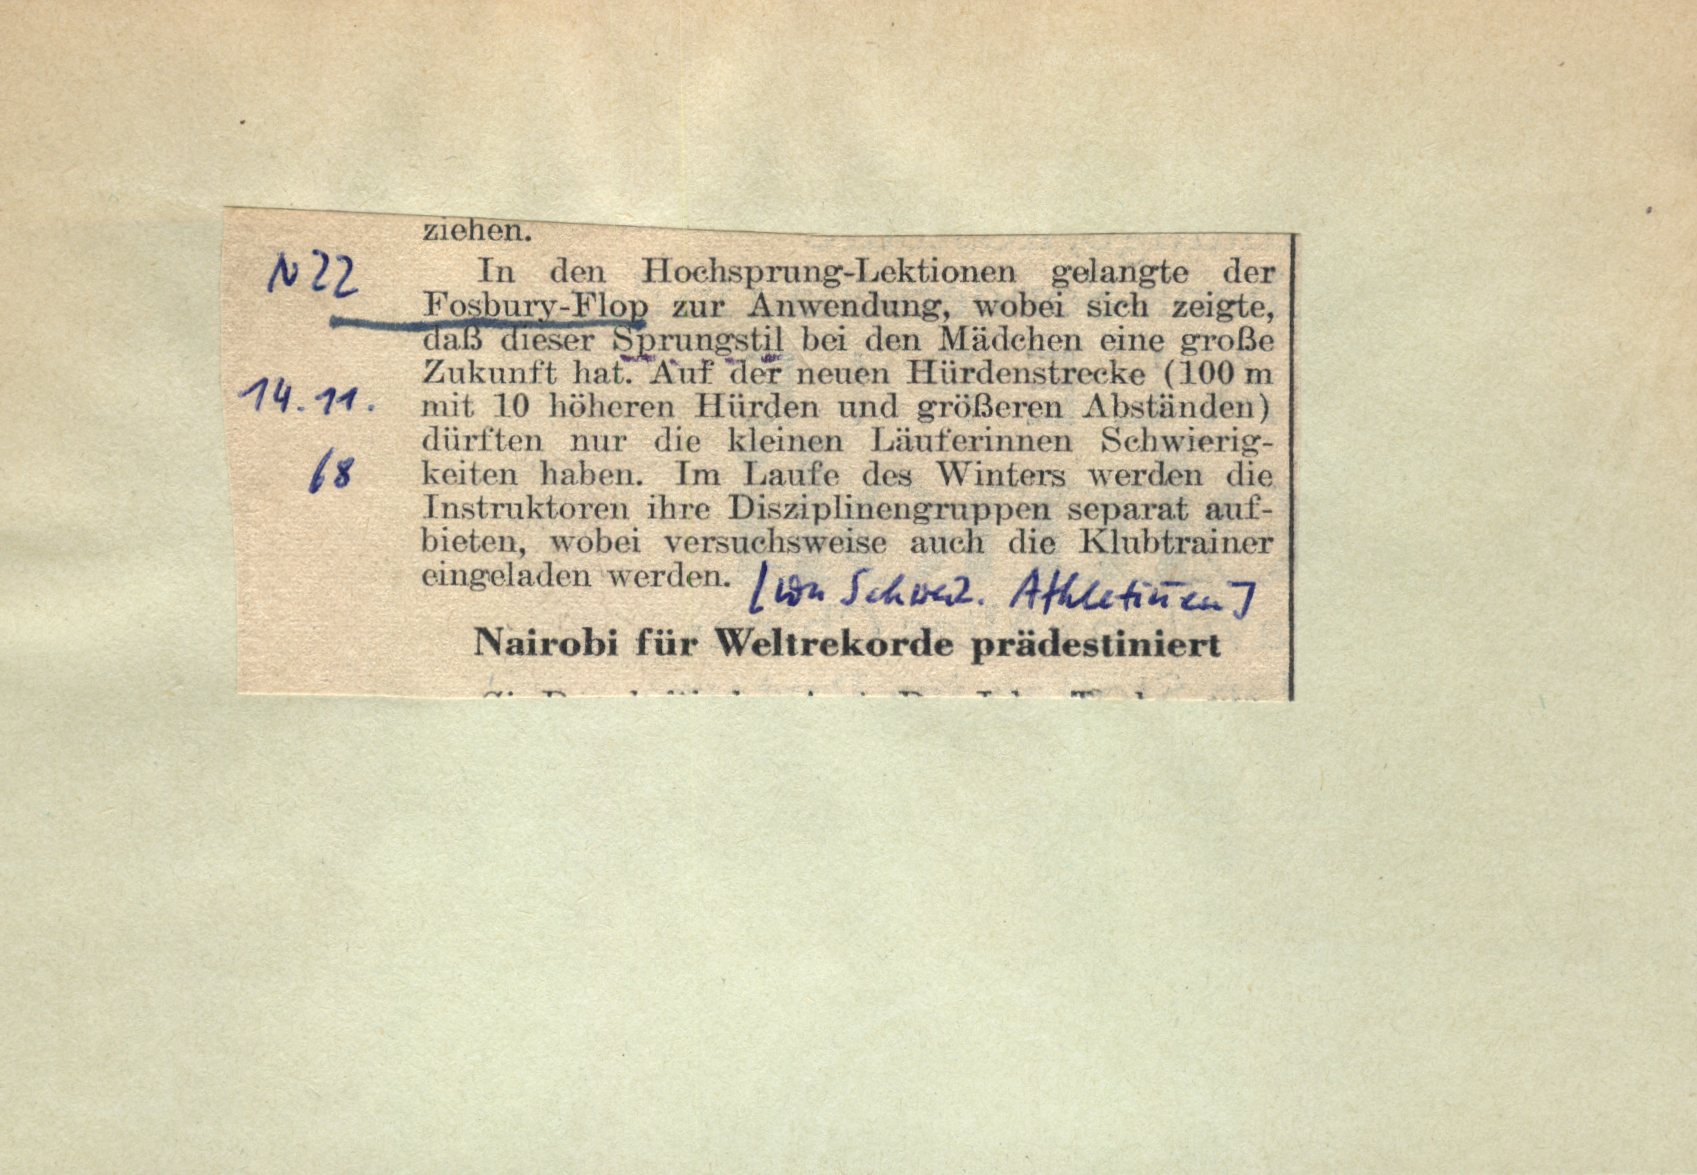 ziehen.
NZZ
In den Hochsprung-Lektionen gelangte der
Fosbury-Flop zur Anwendung, wobei sich zeigte,
daß dieser Sprungstil bei den Mädchen eine große
Zukunft hat. Auf der neuen Hürdenstrecke (100 m
14.11.
mit 10 höheren Hürden und größeren Abständen)
dürften nur die kleinen Läuferinnen Schwierig-
68
keiten haben. Im Laufe des Winters werden die
Instruktoren ihre Disziplinengruppen separat auf-
bieten, wobei versuchsweise auch die Klubtrainer
eingeladen werden.
[von Schweiz. Athletinnen]
Nairobi für Weltrekorde prädestiniert